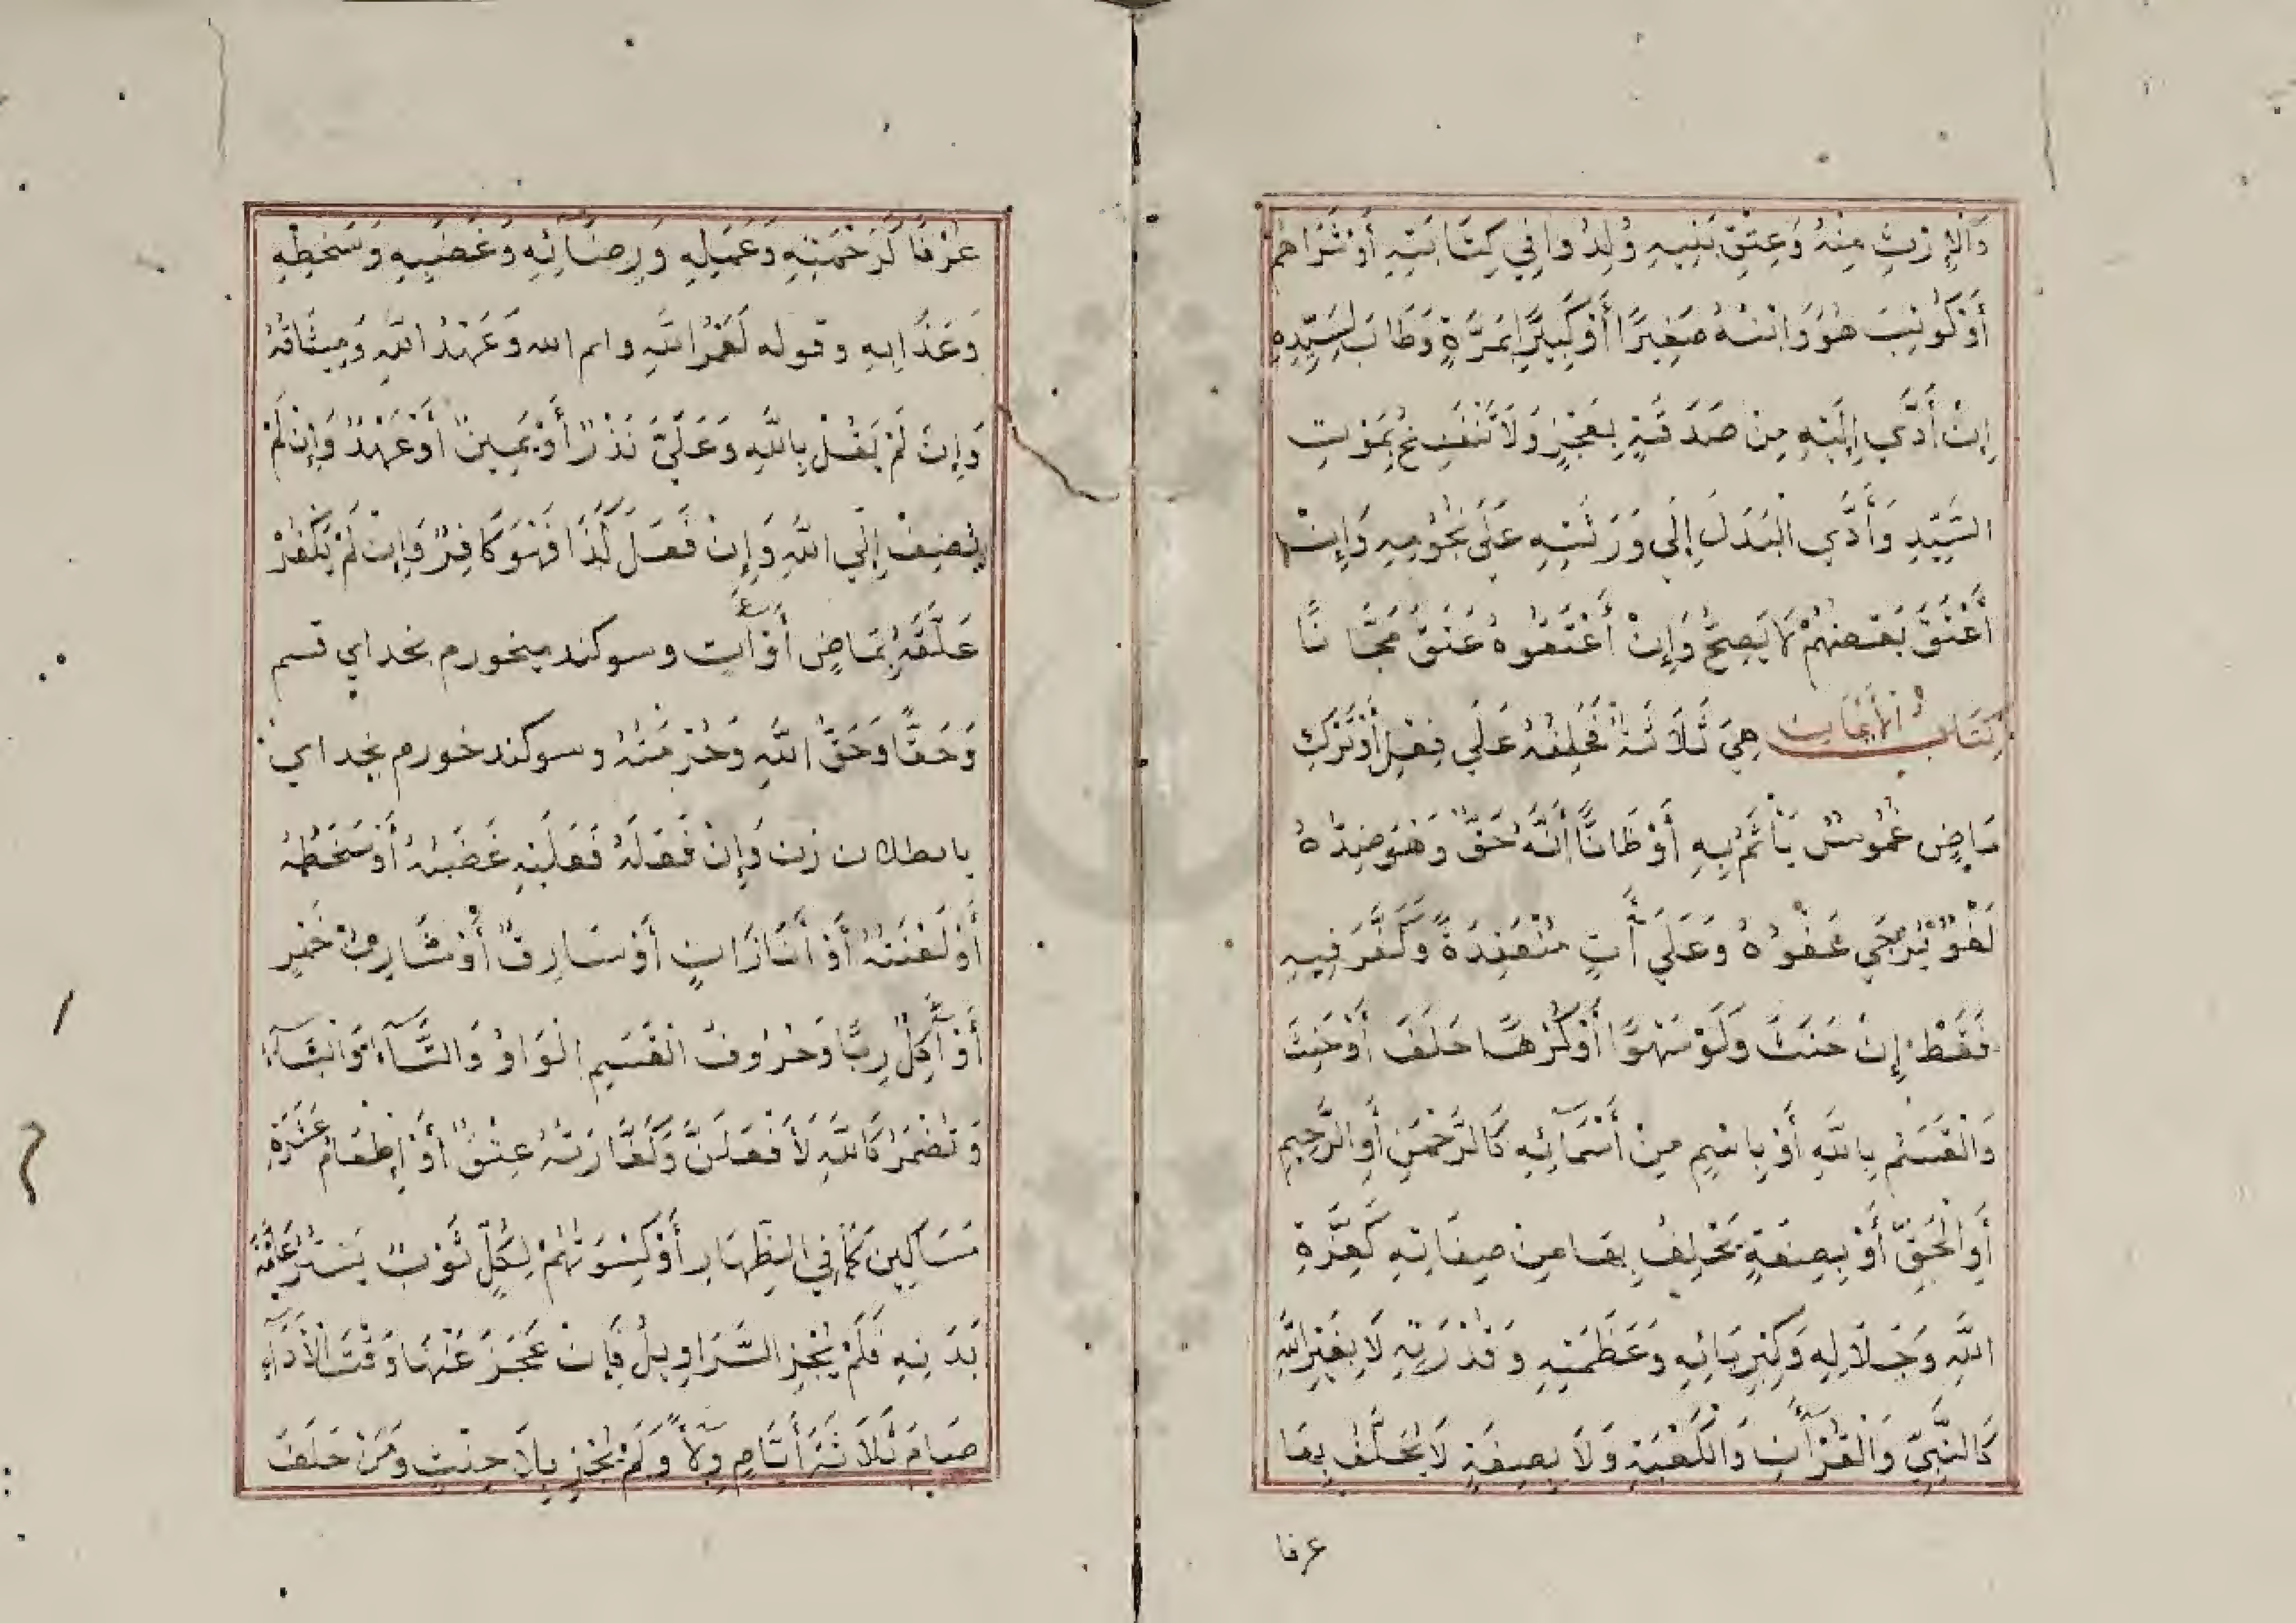 وَالْإِرْثِ مِنْهُ وَعِتْقِ بَنِيهِ وُلِدُوا فِي كِتَابَتِهِ أَوْ شَرَاهُمْ
أَوْ كُوتِبَ هُوَ وَابْنُهُ صَغِيرًا أَوْ كَبِيرًا بِمَرَّةٍ وَطَابَ لِسَيِّدِهِ
إِنْ أَدَّي إِلَيْهِ مِنْ صَدَقَةٍ بِعَجْزٍ وَلَا تَنْفَسِخُ بِمَوْتِ
السَّيِّدِ وَأَدَّي الْبَدَلَ إِلَي وَرَثَتِهِ عَلَي نُجُومِهِ وَإِنْ
أَعْتَقَ بَعْضُهُمْ لَا يَصِحُّ وَإِنْ أَعْتَقُوهُ عَتَقَ مَجَّانًا
كِتَابُ الْأَيْمَانِ هِيَ ثَلَاثَةٌ فَحَلِفُهُ عَلَي فِعْلٍ أَوْ تَرْكٍ
مَاضٍ غَمُوسٌ يَأْثَمُ بِهِ أَوْ ظَانًّا أَنَّهُ حَقٌّ وَهُوَ ضِدُّهُ
لَغْوٌ يُرْجَي عَفْوُهُ وَعَلَي آتٍ مُنْعَقِدَةٌ وَكَفَّرَ فِيهِ
فَقَطْ إِنْ حَنَثَ وَلَوْ سَهْوًا أَوْ كُرْهًا حَلَفَ أَوْ حَنِثَ
وَالْقَسَمُ بِاللَّهِ أَوْ بِاسْمٍ مِنْ أَسْمَآئِهِ كَالرَّحْمَنِ أَوِ الرَّحِيمِ
أَوِ الْحَقِّ أَوْ بِصِفَةٍ يَحْلِفُ بِهَا مِنْ صِفَاتِهِ كَعِزَّةِ
اللَّهِ وَجَلَالِهِ وَكِبْرِيَائِهِ وَعَظَمَتِهِ وَقُدْرَتِهِ لَا بِغَيْرِ اللَّهِ
كَالنَّبِيِّ وَالْقُرْآنِ وَالْكَعْبَةِ وَلَا بِصِفَةٍ لَا يُحْلَفُ بِهَا
عرفا
عُرْفًا كَرَحْمَتِهِ وَعِلْمِهِ وَرِضَائِهِ وَغَضَبِهِ وَسَخَطِهِ
وَعَذَابِهِ وقوله لَعَمْرُ اللَّهِ وايم الله وَعَهْدُ اللَّهِ وَمِيثَاقُهُ
وَإِنْ لَمْ يَقُلْ بِاللَّهِ وَعَلَيَّ نَذْرٌ أَوْ يَمِينٌ أَوْ عَهْدٌ وَإِنْ لَمْ
يُضِفْ إِلَي اللَّهِ وَإِنْ فَعَلَ كَذَا فَهُوَ كَافِرٌ وَإِنْ لَمْ يَكْفُرْ
عَلَّقَهُ بِمَاضٍ أَوْ آتٍ وسوكند ميخورم بخداي قسم
وَحَقًّا وَحَقِّ اللَّهِ وَحُرْمَتُهُ وسوكند خورم بخداي
يا بطلاق زن وَإِنْ فَعَلَهُ فَعَلَيْهِ غَضَبُهُ أَوْ سَخَطُهُ
أَوْ لَعْنَتُهُ أَوْ أَنَا زَانٍ أَوْ سَارِقٌ أَوْ شَارِبُ خَمْرٍ
أَوْ آكِلُ رِبًا وَحُرُوفُ الْقَسَمِ الْوَاوُ وَالتَّآءُ وَالْبَآءُ
وَتُضْمَرُ كَاللَّهِ لَأَفْعَلَنَّ وَكَفَّارَتُهُ عِتْقٌ أَوْ إِطْعَامُ عَشَرَةِ
مَسَاكِينَ كَمَا فِي الظِّهَارِ أَوْ كِسْوَتُهُمْ لِكُلٍّ ثَوْبٌ يَسْتُرُ عَامَّةَ
بَدَنِهِ فَلَمْ يُجْزِ السَّرَاوِيلُ فَإِنْ عَجَزَ عَنْهَا وَقْتَ الْأَدَآءِ
صَامَ ثَلَاثَةَ أَيَّامٍ وِلَاءً وَلَمْ يُجْزِ بِلَا حِنْثٍ وَمَنْ حَلَفَ